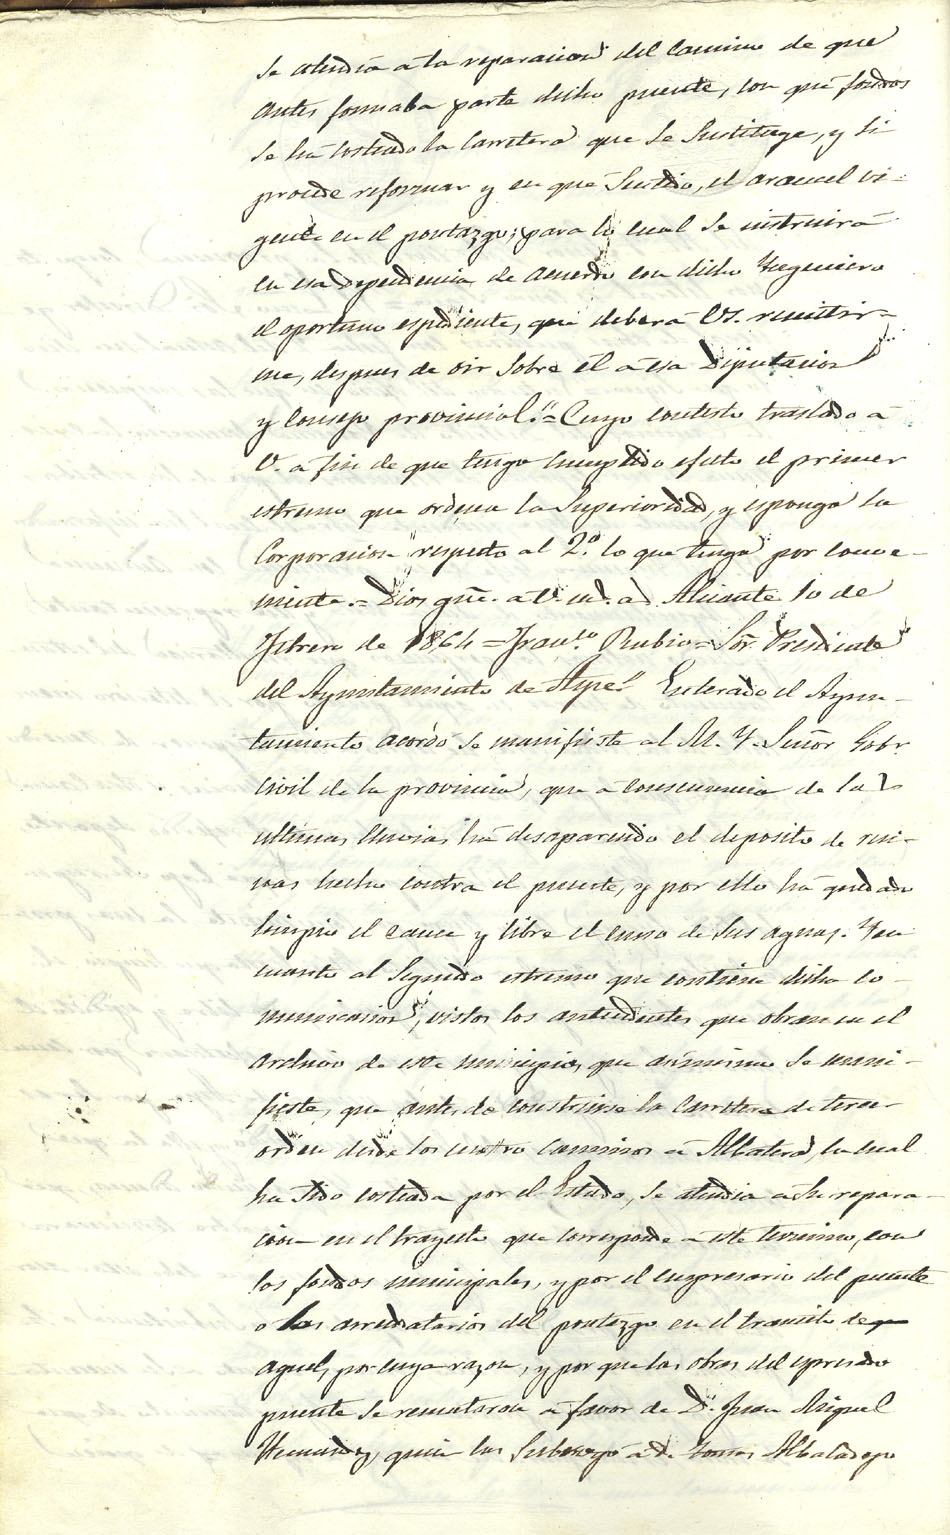 se atendia a la reparacion del camino de que
antes formaba parte dicho puente, con que fondos
se ha costeado la carretera que se sustituye, y si
procede reformar y en que sentido, el arancel vi-
gente en el portazgo; para lo cual se instruirá
en esa dependencia de acuerdo con dicho Yngeniero
el oportuno espediente, que deberá VS. remitir-
me, despues de oir sobre él á esa Diputacion
y Consejo provincial."= Cuyo contesto traslado á
V. a fin de que tenga cumplido efecto el primer
estremo que ordena la Superioridad, y esponga la
Corporacion respecto al 2.º lo que tenga por conve-
niente.= Dios gue. a V. m.s a.s Alicante 10 de
Febrero de 1864 = Fran.co Rubio = Sor. Presidente
del Ayuntamiento de Aspe." Enterado el Ayun-
tamiento acordó se manifieste al M. Y. Señor Gobr
Civil de la provincia, que á consecuencia de las
ultimas lluvias ha desaparecido el deposito de rui-
nas hecho contra el puente, y por ello ha quedado
limpio el cauce y libre el curso de sus aguas. Y en
cuanto al segundo estremo que contiene dicha co-
municacion, vistos los antecedentes que obran en el
archivo de este municipio, que asimismo se mani-
fieste, que antes de construirse la carretera de tercer
orden desde los cuatro caminos á Albatera, la cual
ha sido costeada por el Estado, se atendia a su repara-
cion en el trayecto que corresponde a este termino, con
los fondos municipales, y por el empresario del puente
o los arrendatarios del portazgo en el transito de
aquel, por cuya razon, y por que las obras del espresado
puente se remataron á favor de D. Juan Miguel
Hernandez, quien las subrogó á D. Tomas Albaladejo